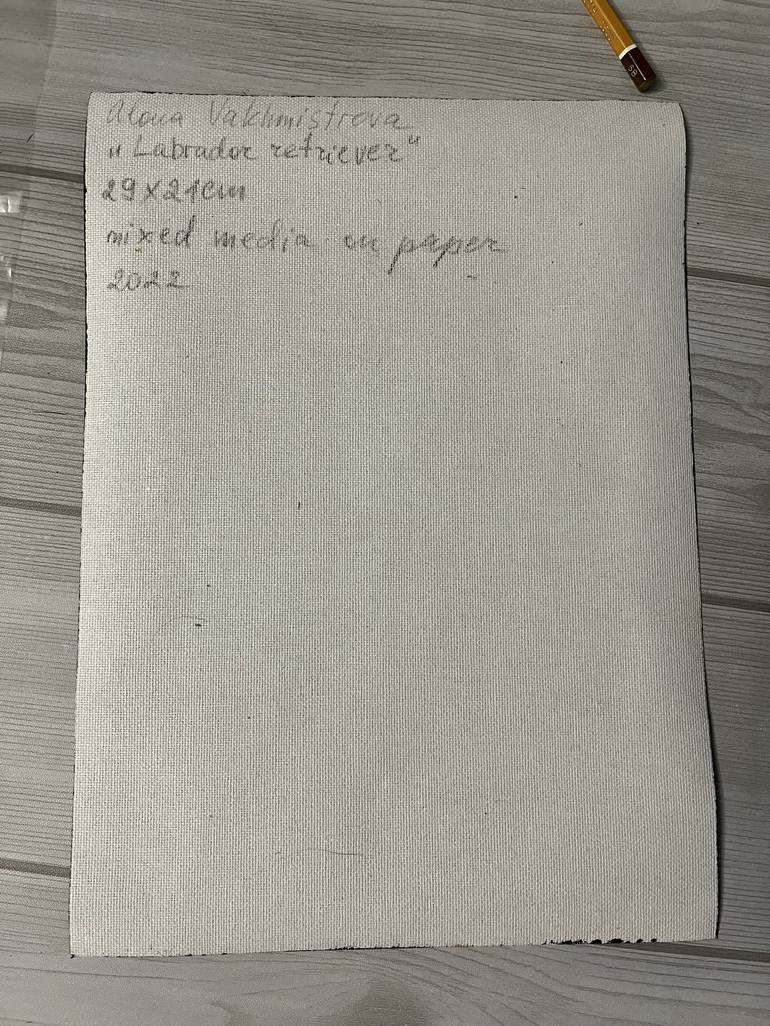 Alona Vakhmistrova
„Labrador retriever"
29x21cm
mixed media on paper
2022